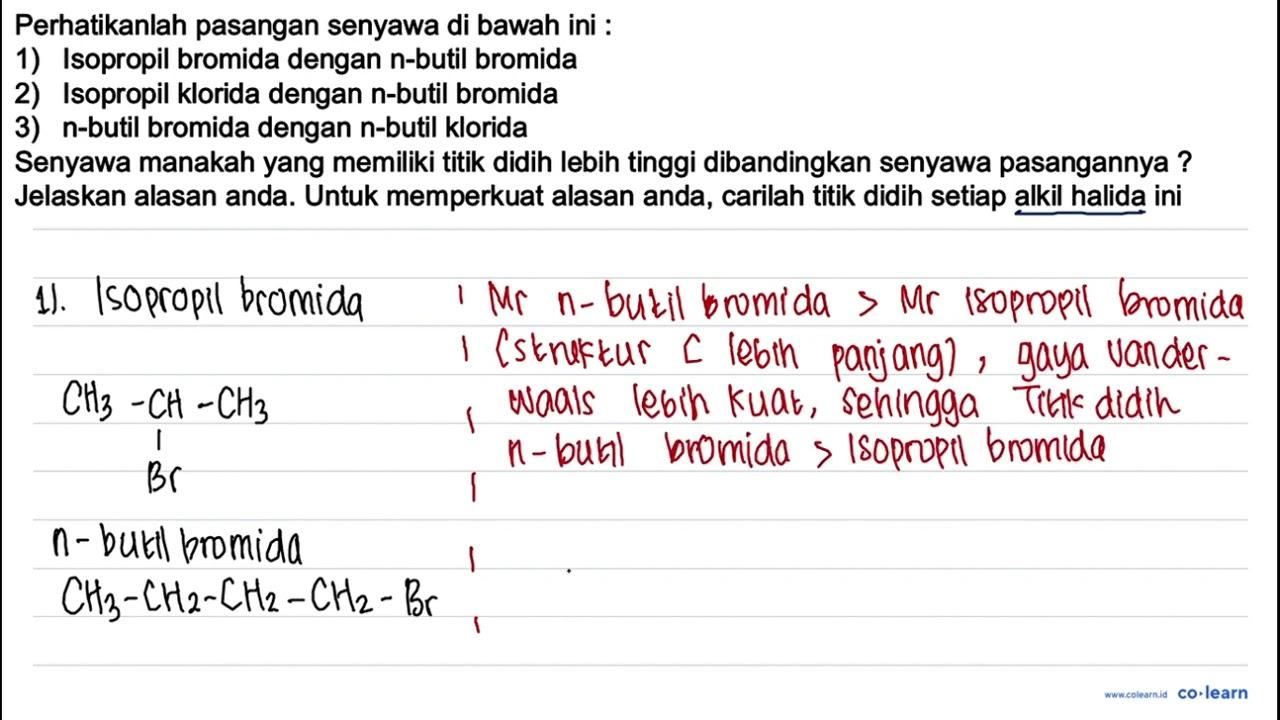 Perhatikanlah pasangan senyawa di bawah ini :
1) Isopropil bromida dengan n-butil bromida
2) Isopropil klorida dengan n-butil bromida
3) n-butil bromida dengan n-butil klorida
Senyawa manakah yang memiliki titik didih lebih tinggi dibandingkan senyawa pasangannya ?
Jelaskan alasan anda. Untuk memperkuat alasan anda, carilah titik didih setiap alkil halida ini
1). Isopropil bromida
CH3 - CH - CH3
Br
n- butil bromida
CH3-CH2-CH2-CH2-Br
Mr n-butil bromida > Mr isopropil bromida
(struktur C lebih panjang), gaya vander-
waals lebih kuat, sehingga Titik didih
n-butil bromida > Isopropil bromida
www.colearn.id co·learn